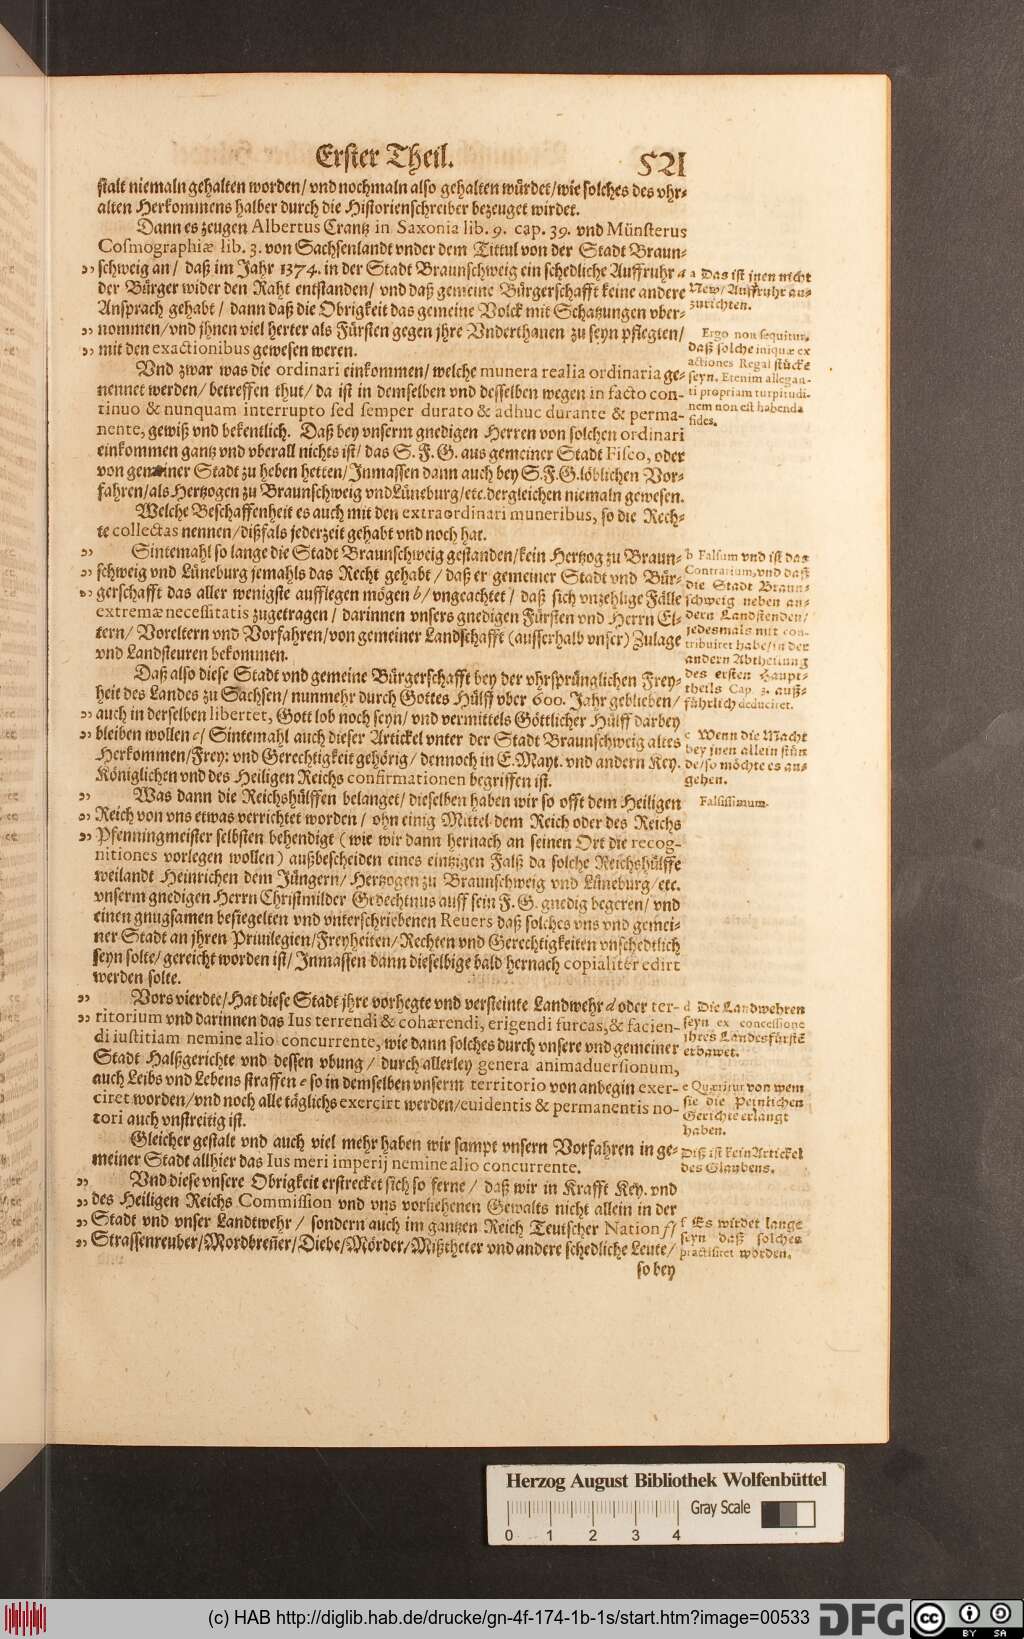 Erster Theil. 521
stalt niemaln gehalten worden/ vnd nochmaln also gehalten würdet/wie solches des vhr-
alten Herkommens halber durch die Historienschreiber bezeuget wirdet.
Dann es zeugen Albertus Crantz in Saxonia lib. 9. cap. 39. vnd Münsterus
Cosmographiæ lib. 3. von Sachsenlandt vnder dem Tittul von der Stadt Braun-
schweig an/ daß im Jahr 1374. in der Stadt Braunschweig ein schedliche Auffruhr a
der Bürger wider den Raht entstanden/ vnd daß gemeine Bürgerschafft keine andere
Ansprach gehabt/ dann daß die Obrigkeit das gemeine Volck mit Schatzungen vber-
nommen/ vnd jhnen viel herter als Fürsten gegen jhre Vnderthauen zu seyn pflegten/
mit den exactionibus gewesen weren.
a Das ist jnen nicht
New/ Auffruhr an-
zurichten.
Ergo non sequitur,
daß solche iniquæ ex
actiones Regal stücke
seyn. Etenim allegan-
ti propriam turpitudi-
nem non est habenda
fides.
Vnd zwar was die ordinari einkommen/ welche munera realia ordinaria ge-
nennet werden/ betreffen thut/ da ist in demselben vnd desselben wegen in facto con-
tinuo & nunquam interrupto sed semper durato & adhuc durante & perma-
nente, gewiß vnd bekentlich. Daß bey vnserm gnedigen Herren von solchen ordinari
einkommen gantz vnd vberall nichts ist/ das S. F. G. aus gemeiner Stadt Fisco, oder
von gemeiner Stadt zu heben hetten/ Inmassen dann auch bey S.F.G. löblichen Vor-
fahren/als Hertzogen zu Braunschweig vnd Lüneburg/etc. dergleichen niemaln gewesen.
Welche Beschaffenheit es auch mit den extraordinari muneribus, so die Rech-
te collectas nennen/ dißfals jederzeit gehabt vnd noch hat.
Sintemahl so lange die Stadt Braunschweig gestanden/kein Hertzog zu Braun-
schweig vnd Lüneburg jemahls das Recht gehabt/ daß er gemeiner Stadt vnd Bür-
gerschafft das aller wenigste aufflegen mögen b/ vngeachtet/ daß sich vnzehlige Fälle
extremæ necessitatis zugetragen/ darinnen vnsers gnedigen Fürsten vnd Herrn El-
tern/ Voreltern vnd Vorfahren/von gemeiner Landschafft (ausserhalb vnser) Zulage
vnd Landsteuren bekommen.
b Falsum vnd ist das
Contrarium, vnd daß
die Stadt Braun-
schweig neben an-
dern Landstenden/
jedesmals mit con-
tribuiret habe/in der
andern Abtheilung
des ersten Haupt-
theils Cap. 3. auß-
führlich deduciret.
Daß also diese Stadt vnd gemeine Bürgerschafft bey der vhrsprünglichen Frey-
heit des Landes zu Sachsen/ nunmehr durch Gottes Hülff vber 600. Jahr geblieben/
auch in derselben libertet, Gott lob noch seyn/ vnd vermittels Göttlicher Hülff darbey
bleiben wollen c/ Sintemahl auch dieser Artickel vnter der Stadt Braunschweig altes
Herkommen/Frey: vnd Gerechtigkeit gehörig/ dennoch in E. Mayt. vnd andern Key.
Königlichen vnd des Heiligen Reichs confirmationen begriffen ist.
c Wenn die Macht
bey jnen allein stün
de/ so möchte es an-
gehen.
Was dann die Reichshülffen belanget/ dieselben haben wir so offt dem Heiligen
Reich von vns etwas verrichtet worden/ ohn einig Mittel dem Reich oder des Reichs
Pfenningmeister selbsten behendigt (wie wir dann hernach an seinen Ort die recog-
nitiones vorlegen wollen) außbescheiden eines eintzigen Falß da solche Reichshülffe
weilandt Heinrichen dem Jüngern/ Hertzogen zu Braunschweig vnd Lüneburg/ etc.
vnserm gnedigen Herrn Christmilder Gedechtnus auff sein F. G. gnedig begeren/ vnd
einen gnugsamen besiegelten vnd vnterschriebenen Reuers daß solches vns vnd gemei-
ner Stadt an jhren Priuilegien/Freyheiten/Rechten vnd Gerechtigkeiten vnschedtlich
seyn solte/ gereicht worden ist/ Inmassen dann dieselbige bald hernach copialiter edirt
werden solte.
Falsissimum.
Vors vierdte/ Hat diese Stadt jhre vorhegte vnd versteinte Landwehr d oder ter-
ritorium vnd darinnen das Ius terrendi & cohærendi, erigendi furcas, & facien-
di iustitiam nemine alio concurrente, wie dann solches durch vnsere vnd gemeiner
Stadt Halßgerichte vnd dessen vbung/ durch allerley genera animaduersionum,
auch Leibs vnd Lebens straffen e so in demselben vnserm territorio von anbegin exer-
ciret worden/ vnd noch alle täglichs exercirt werden/euidentis & permanentis no-
tori auch vnstreitig ist.
d Die Landwehren
seyn ex concessione
jhres Landesfürstē
erbawet.
e Quæritur von wem
sie die Peinlichen
Gerichte erlangt
haben.
Gleicher gestalt vnd auch viel mehr haben wir sampt vnsern Vorfahren in ge-
meiner Stadt allhier das Ius meri imperij nemine alio concurrente.
Diß ist kein Artickel
des Glaubens.
Vnd diese vnsere Obrigkeit erstrecket sich so ferne/ daß wir in Krafft Key. vnd
des Heiligen Reichs Commission vnd vns vorliehenen Gewalts nicht allein in der
Stadt vnd vnser Landtwehr/ sondern auch im gantzen Reich Teutscher Nation f/
Strassenreuber/Mordbreñer/Diebe/Mörder/Mißtheter vnd andere schedliche Leute/
f Es wirdet lange
seyn daß solches
practisiret worden.
so bey
Herzog August Bibliothek Wolfenbüttel
Gray Scale
0 1 2 3 4
(c) HAB http://diglib.hab.de/drucke/gn-4f-174-1b-1s/start.htm?image=00533
DFG
cc BY SA